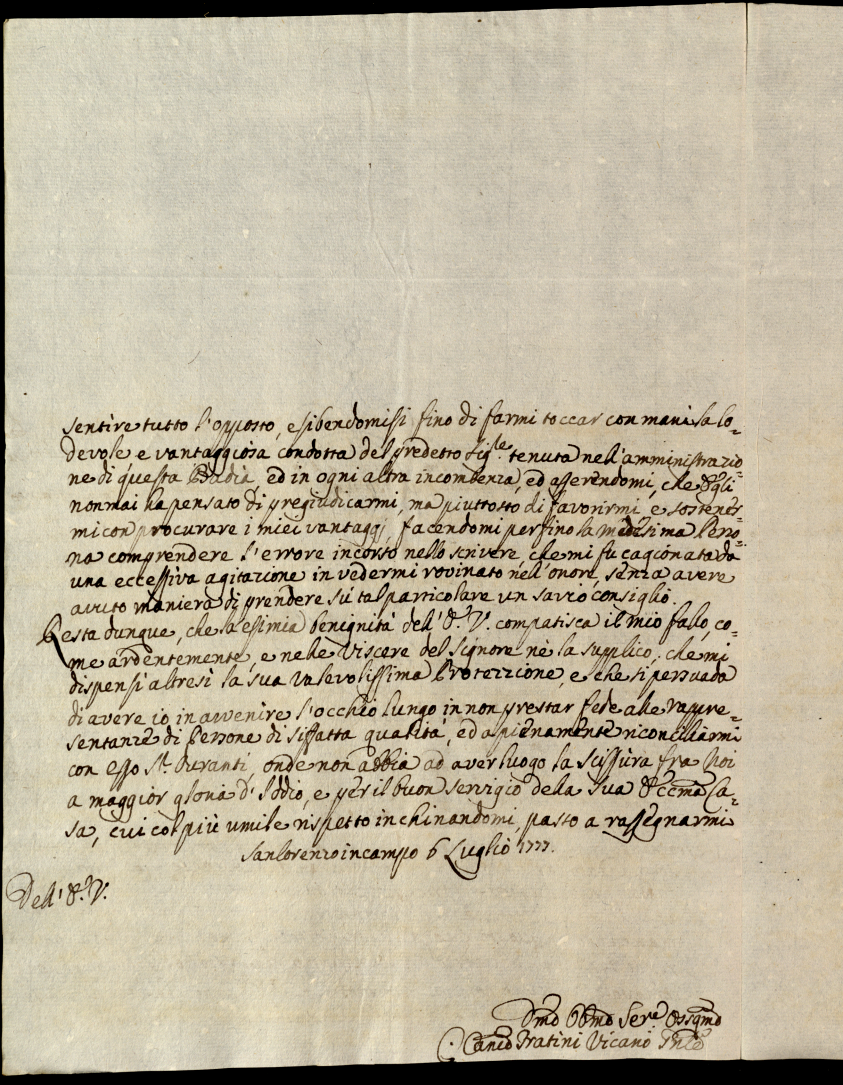 sentire tutto l'opposto, esibendomisi fino di farmi toccar con mani la lo=
devole e vantaggiosa condotta del predetto Sig.le tenuta nell'amministrazio=
ne di questa Badia, ed in ogni altra incombenza, ed asserendomi, che Egli
nonmai ha pensato di pregiudicarmi, ma piuttosto di favorirmi, e sostener=
mi con procurare i miei vantaggj, facendomi perfino la medesima Perso=
na comprendere l'errore incorso nello scrivere, che mi fu cagionata da
una eccessiva agitazione in vedermi rovinato nell'onore, senza avere
avuto maniera di prendere sù tal particolare un savio consiglio.
Resta dunque, che la esimia benignità dell'E.V. compatisca il mio fallo, co=
me ardentemente, e nelle Viscere del Signore nè la supplico; che mi
dispensi altresì la sua valevolissima Protezzione, e che si persuada
di avere io in avvenire l'occhio lungo in non prestar fede alle rappre=
sentanze di Persone di siffatta qualità, ed a pienamente riconciliarmi
con esso Sr. Duranti, onde non abbia ad aver luogo la scissura fra Noi
a maggior gloria d'Iddio, e per il buon servigio della Sua Eccma Ca=
sa, cui col più umile rispetto inchinandomi, passo a rassegnarmi
San Lorenzo in campo 6 Luglio 1777.
Dell'E.V.
Dmo Obmo Sere Ossqmo
Canco Fratini Vicario